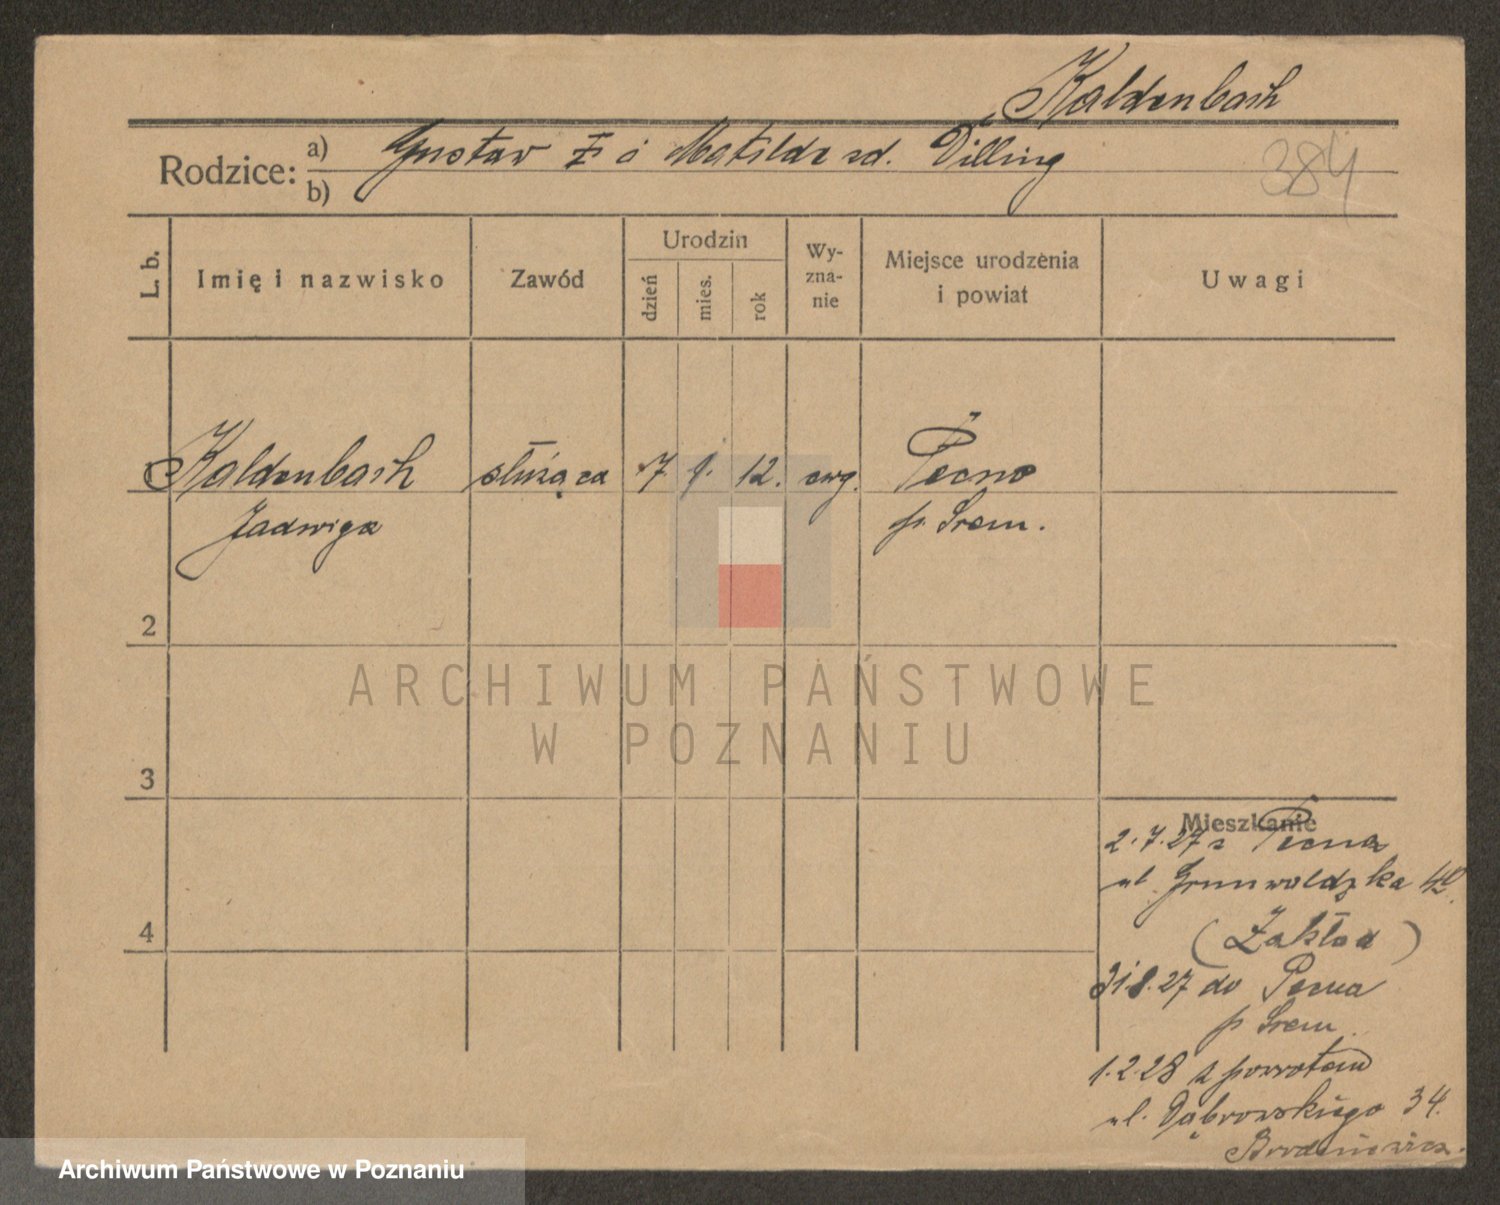 Kaldenbach
Rodzice: a) Gustaw i Matilde zd. Dilling
b)
384
L. b. Imię i nazwisko Zawód Urodzin dzień mies. rok Wy-zna-nie Miejsce urodzenia i powiat Uwagi
Kaldenbach służąca 7. 9. 12. ewg. Pecno
Jadwiga p. Śrem.
2
3
4
Mieszkanie
2.7.27 z Pecna
ul. Grunwaldzka
(Zakład)
31.8.27 do Pecna
p Śrem
1.2.28 z powrotem
ul. Dąbrowskiego 34.
ARCHIWUM PAŃSTWOWE
W POZNANIU
Archiwum Państwowe w Poznaniu